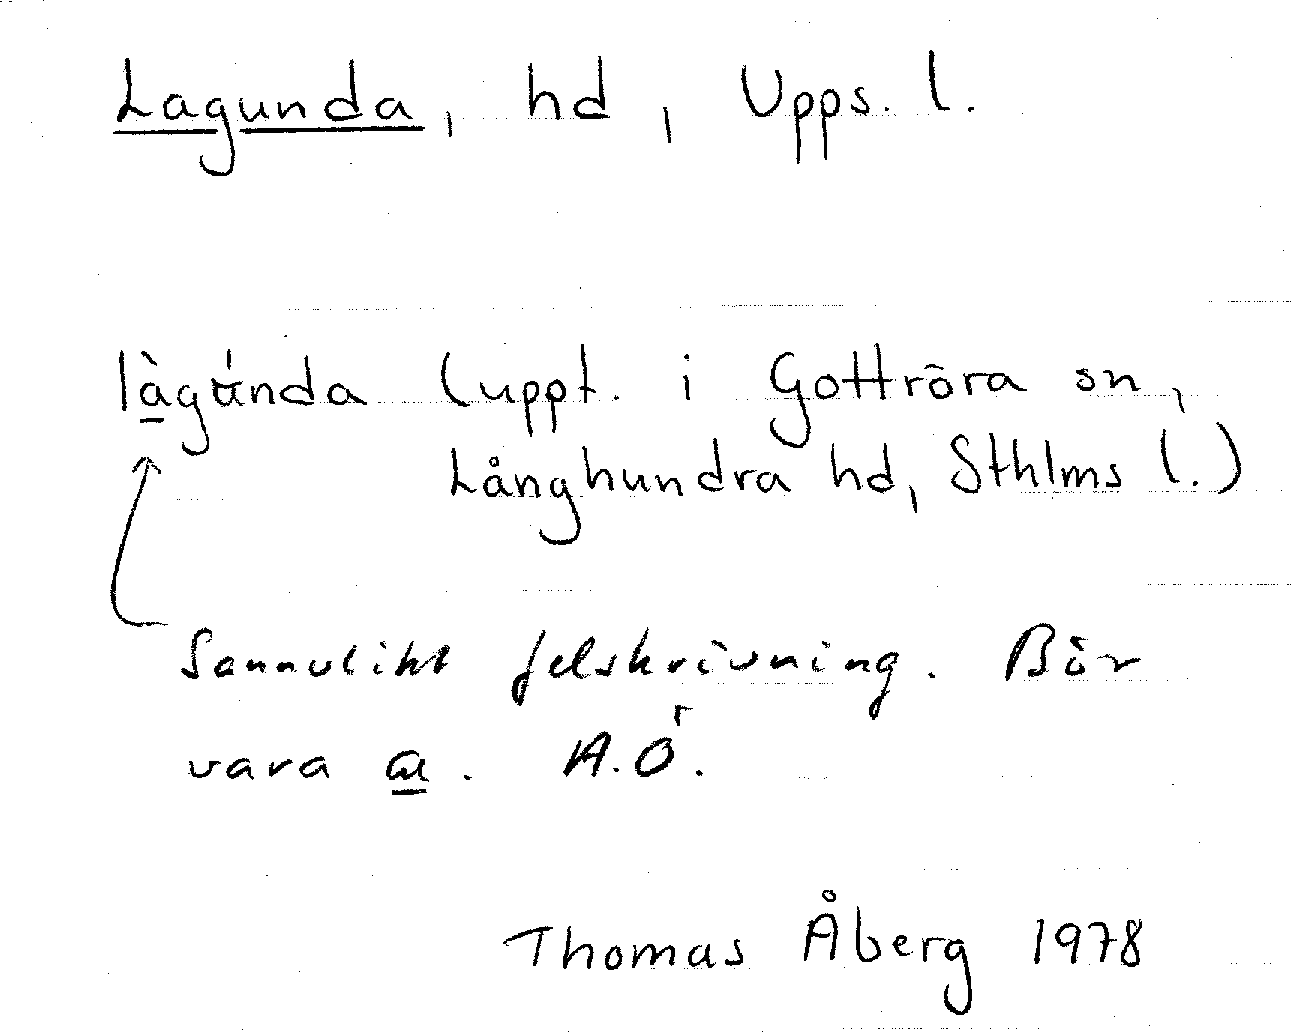 Lagunda, hd, Upps. l.
làgúnda (uppt. i Gottröra sn,
Långhundra hd, Sthlms l.)
Sannolikt felskrivning. Bör
vara a. A.Ö.
Thomas Åberg 1978